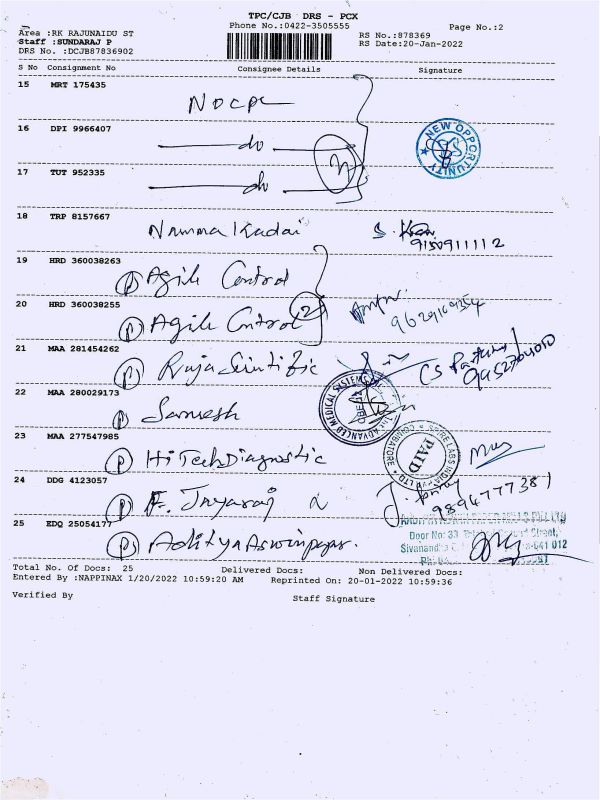 TPC/CJB DRS - PCX
Area :RK RAJUNAIDU ST Phone No.:0422-3505555 Page No.:2
Staff :SUNDARAJ P RS No.:878369
DRS No. :DCJB87836902 RS Date:20-Jan-2022
S No Consignment No Consignee Details Signature
15 MRT 175435
NDCPL
16 DPI 9966407
do
NEW OPPORTUNITY
17 TUT 952335
do
18 TRP 8157667
Namma Kadai S.
9150911112
19 HRD 360038263
P Agile Control
20 HRD 360038255 2
P Agile Control
21 MAA 281454262
P Raja Scientific CS
22 MAA 280029173
P Sarvesh
ADVANCED MEDICAL SYSTEMS
23 MAA 277547985
P HiTech Diagnostic
SPIRE LABS INDIA P LTD
PAID
COIMBATORE
24 DDG 4123057
P F. Jayaraj
25 EDQ 25054177
P Adithya Aswin paper.
Door No: 33 Street,
Sivananda -641 012
Total No. Of Docs: 25 Delivered Docs: Non Delivered Docs:
Entered By :NAPPINAX 1/20/2022 10:59:20 AM Reprinted On: 20-01-2022 10:59:36
Verified By Staff Signature